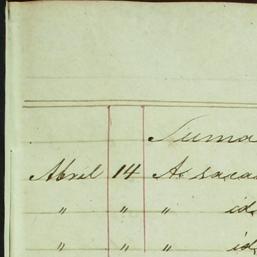 Suma
Abril 14 A. saca
" " " id.
" " " id.